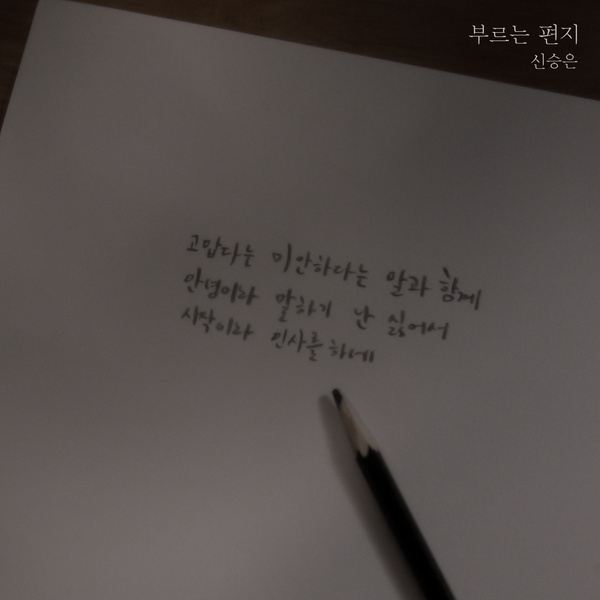 부르는 편지
신승은
고맙다는 미안하다는 말과 함께
안녕이라 말하기 난 싫어서
시작이라 인사를 하네